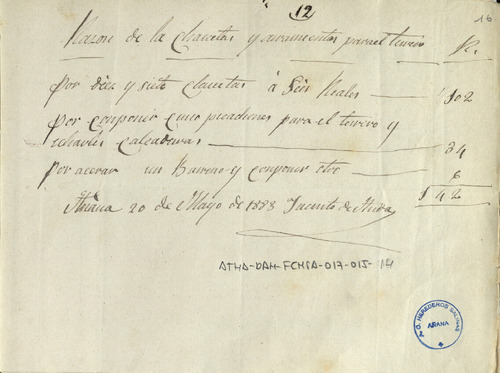 12
16
Razon de la Clavetas y erramientas para el terrero R.s
por diez y siete clavetas á Seis Reales 102
por componer cinco picachones para el terrero y
echarles calcaduras 34
por acerar un Barreno y componer otro 6
Añana 20 de Mayo de 1883 142
ATHA-DAH-FCMSA-017-015-14
HEREDEROS SALINAS
AÑANA